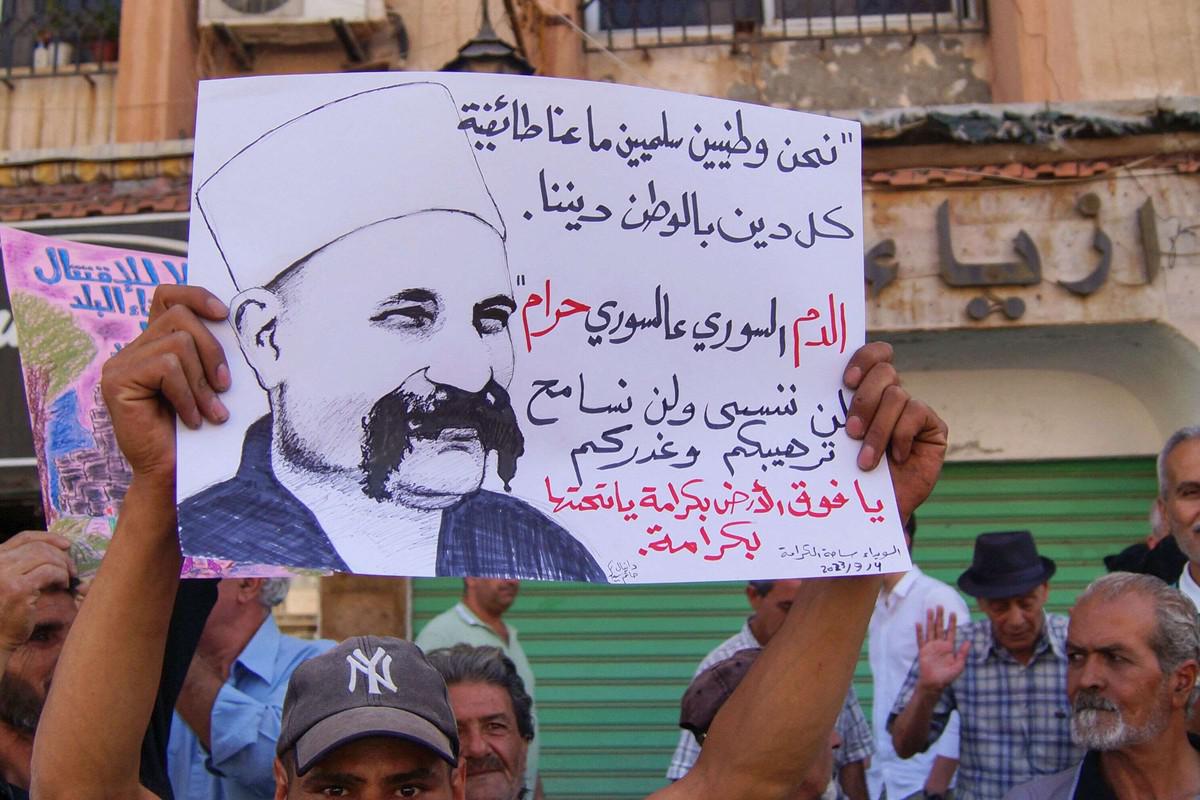 "نحن وطنيين سلميين ما عنا طائفية
كل دين بالوطن ديننا.
الدم السوري عالسوري حرام"
لن ننسى ولن نسامح
ترهيبكم وغدركم
يا فوق الأرض بكرامة يا تحتها
بكرامة.
السويداء ساحة الكرامة
2023/9/4
دانيال
لا للإقتتال
البلد
ازياء
NY